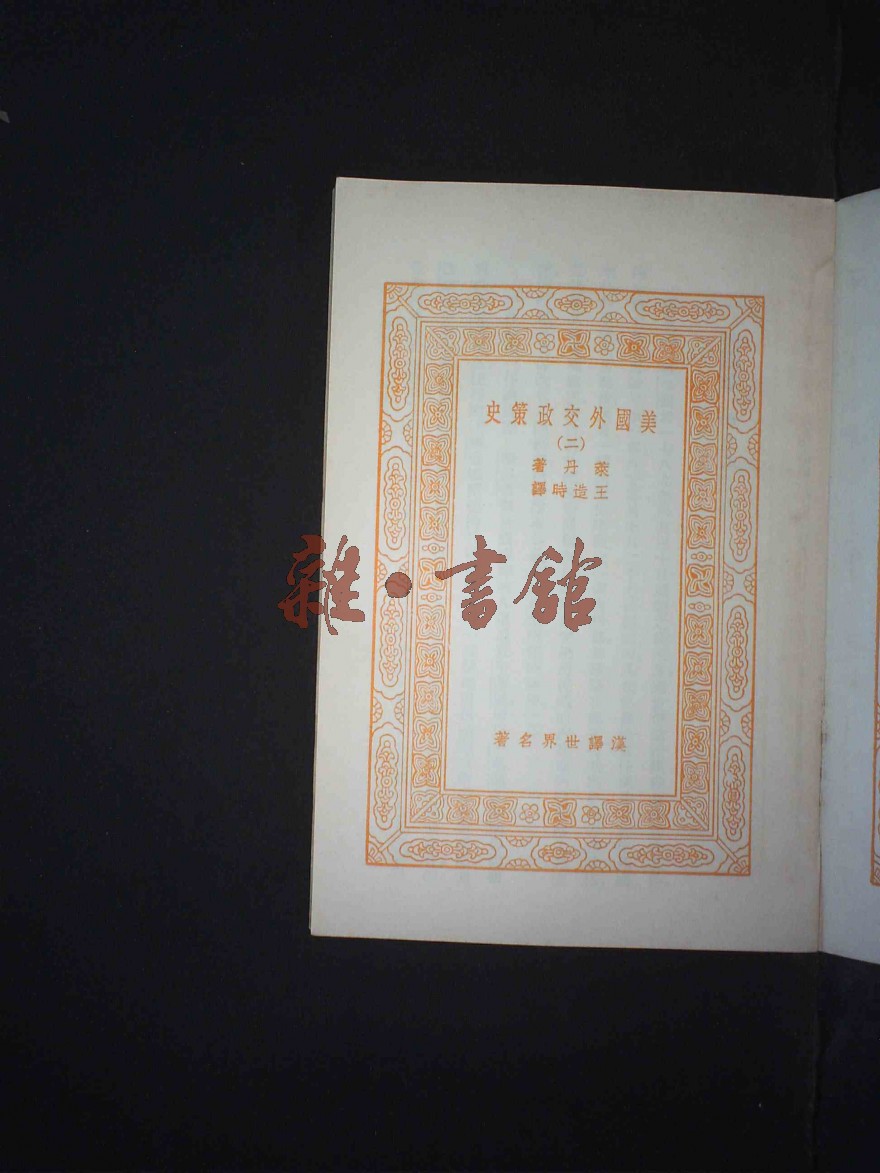 美國外交政策史
(二)
萊丹著
王造時譯
雜·書館
漢譯世界名著